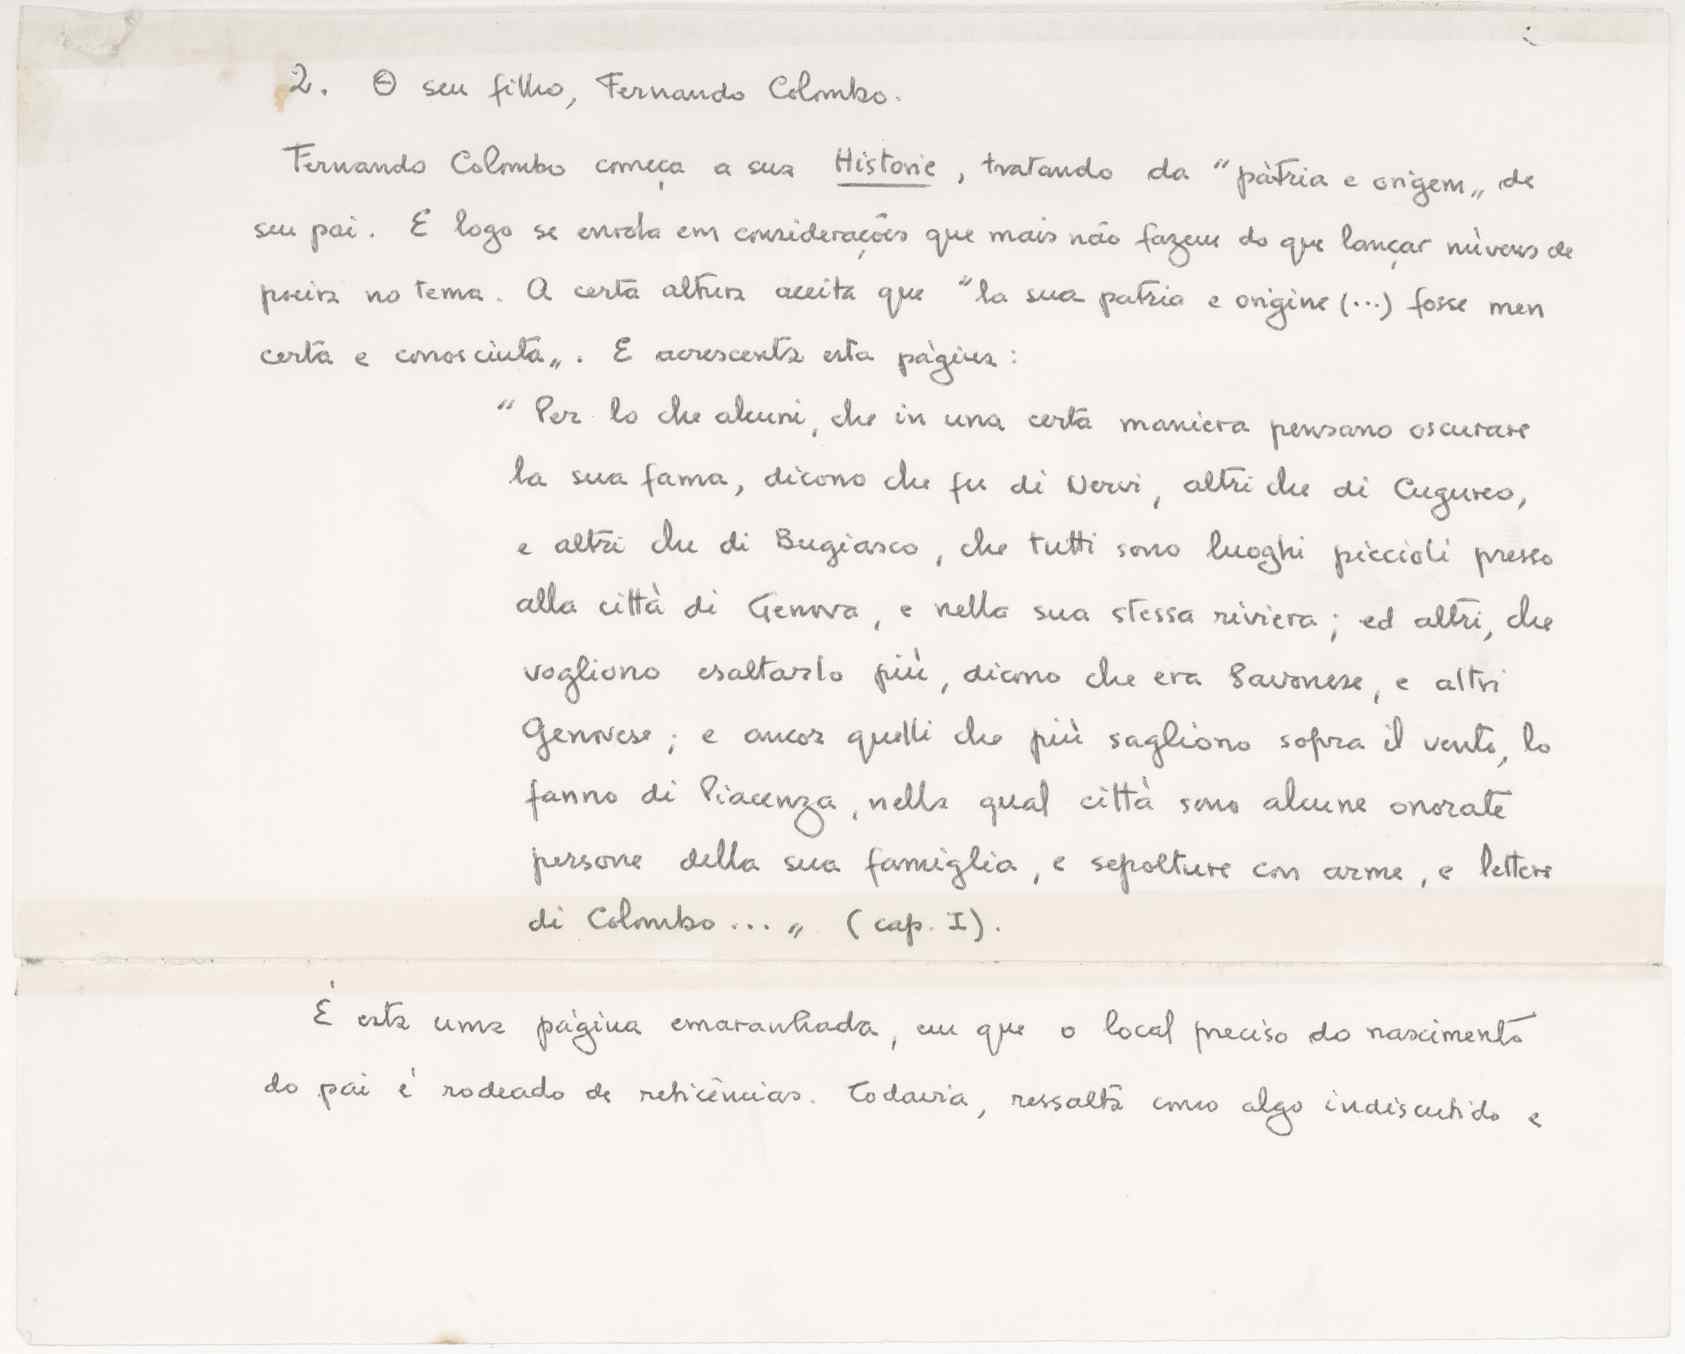 2. O seu filho, Fernando Colombo.
Fernando Colombo começa a sua Historie, tratando da "pàtria e origem„ de
seu pai. E logo se enrola em considerações que mais não fazem do que lançar nùvens de
poeira no tema. A certa altura aceita que "la sua patria e origine (...) fosse men
certa e conosciuta„. E acrescenta esta pàgina:
"Per lo che alcuni, che in una certa maniera pensano oscurare
la sua fama, dicono che fu di Nervi, altri che di Cugureo,
e altri che di Bugiasco, che tutti sono luoghi piccioli presso
alla città di Genova, e nella sua stessa riviera; ed altri, che
vogliono esaltarlo più, dicono che era Savonese, e altri
Genovese; e ancor quelli che più sagliono sopra il vento, lo
fanno di Piacenza, nella qual città sono alcune onorate
persone della sua famiglia, e sepolture con arme, e lettere
di Colombo...„ (cap. I).
É esta uma página emaranhada, em que o local preciso do nascimento
do pai é rodeado de reticências. Todavia, ressalta como algo indiscutido e